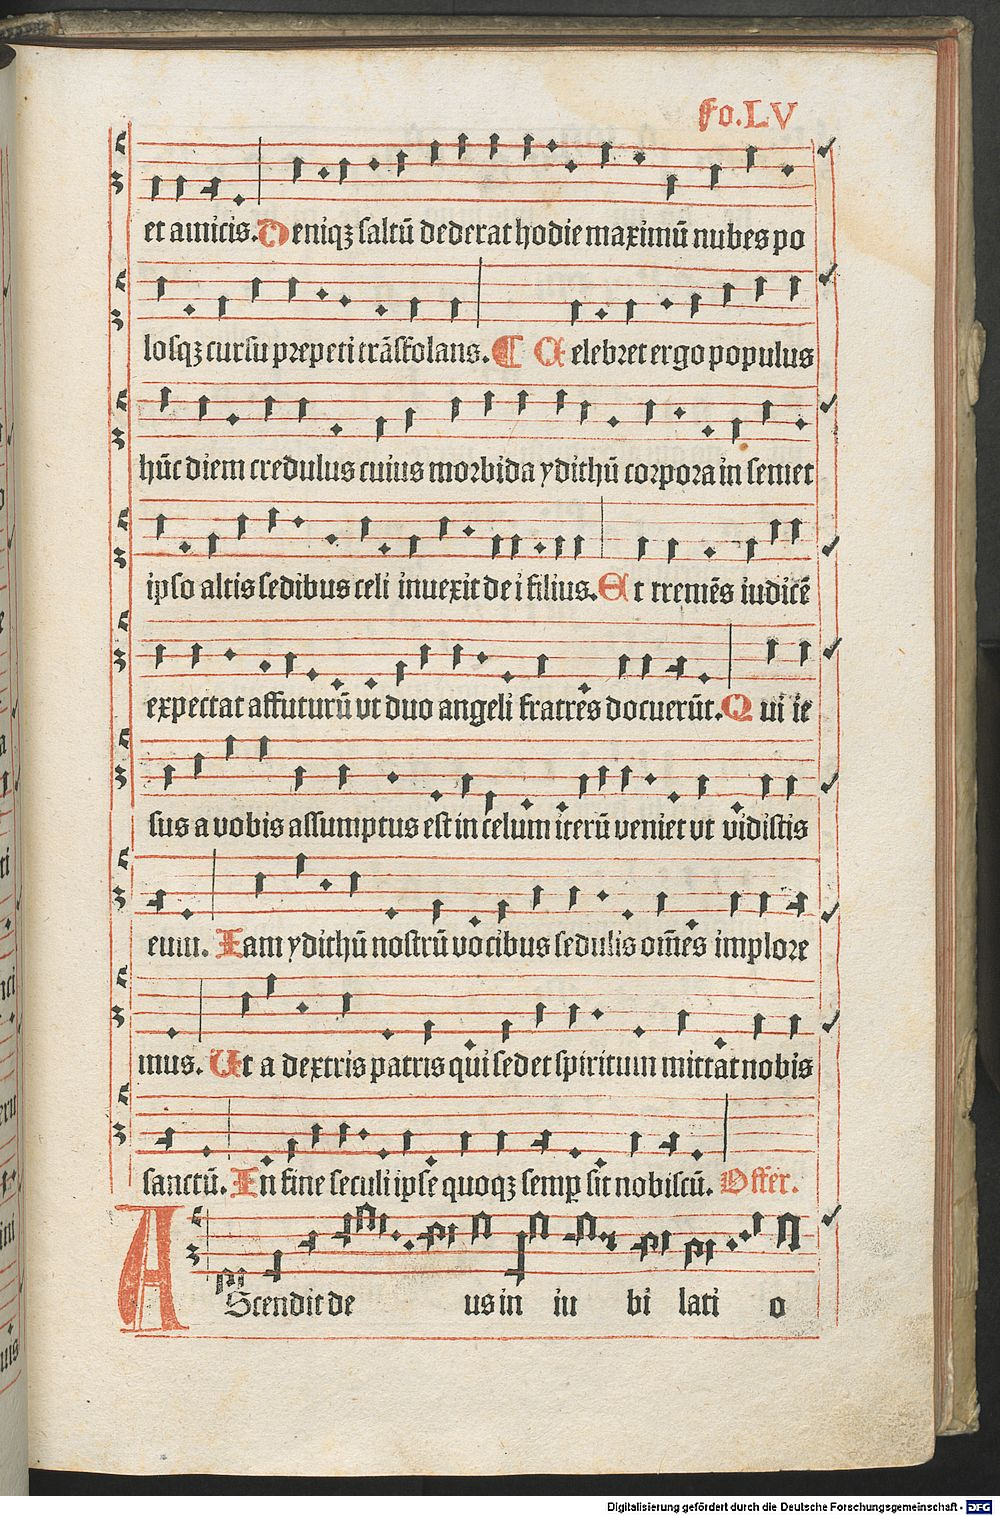 Fo.LV
et amicis. Deniqꝫ saltū dederat hodie maximū nubes po
losqꝫ cursu prepeti trāsuolans. ¶ Celebret ergo populus
hūc diem credulus cuius morbida ydithū corpora in semet
ipso altis sedibus celi inuexit dei filius. Et tremēs iudicē
expectat affuturū vt duo angeli fratres docuerūt. Qui ie
sus a vobis assumptus est in celum iterū veniet vt vidistis
eum. Iam ydithū nostrū vocibus sedulis om̄es implore
mus. Ut a dextris patris qui sedet spiritum mittat nobis
sanctū. In fine seculi ipse quoqꝫ semp sit nobiscū. Offer.
AScendit deus in iubilatio
Digitalisierung gefördert durch die Deutsche Forschungsgemeinschaft - DFG